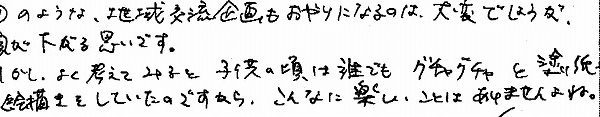 のような、地域交流企画もおやりになるのは、大変でしょうが、
頭が下がる思いです。
しかし、よく考えてみると子供の頃は誰でもグチャグチャと塗り絵
絵描きをしていたのですから、こんなに楽しいことはありませんよね。